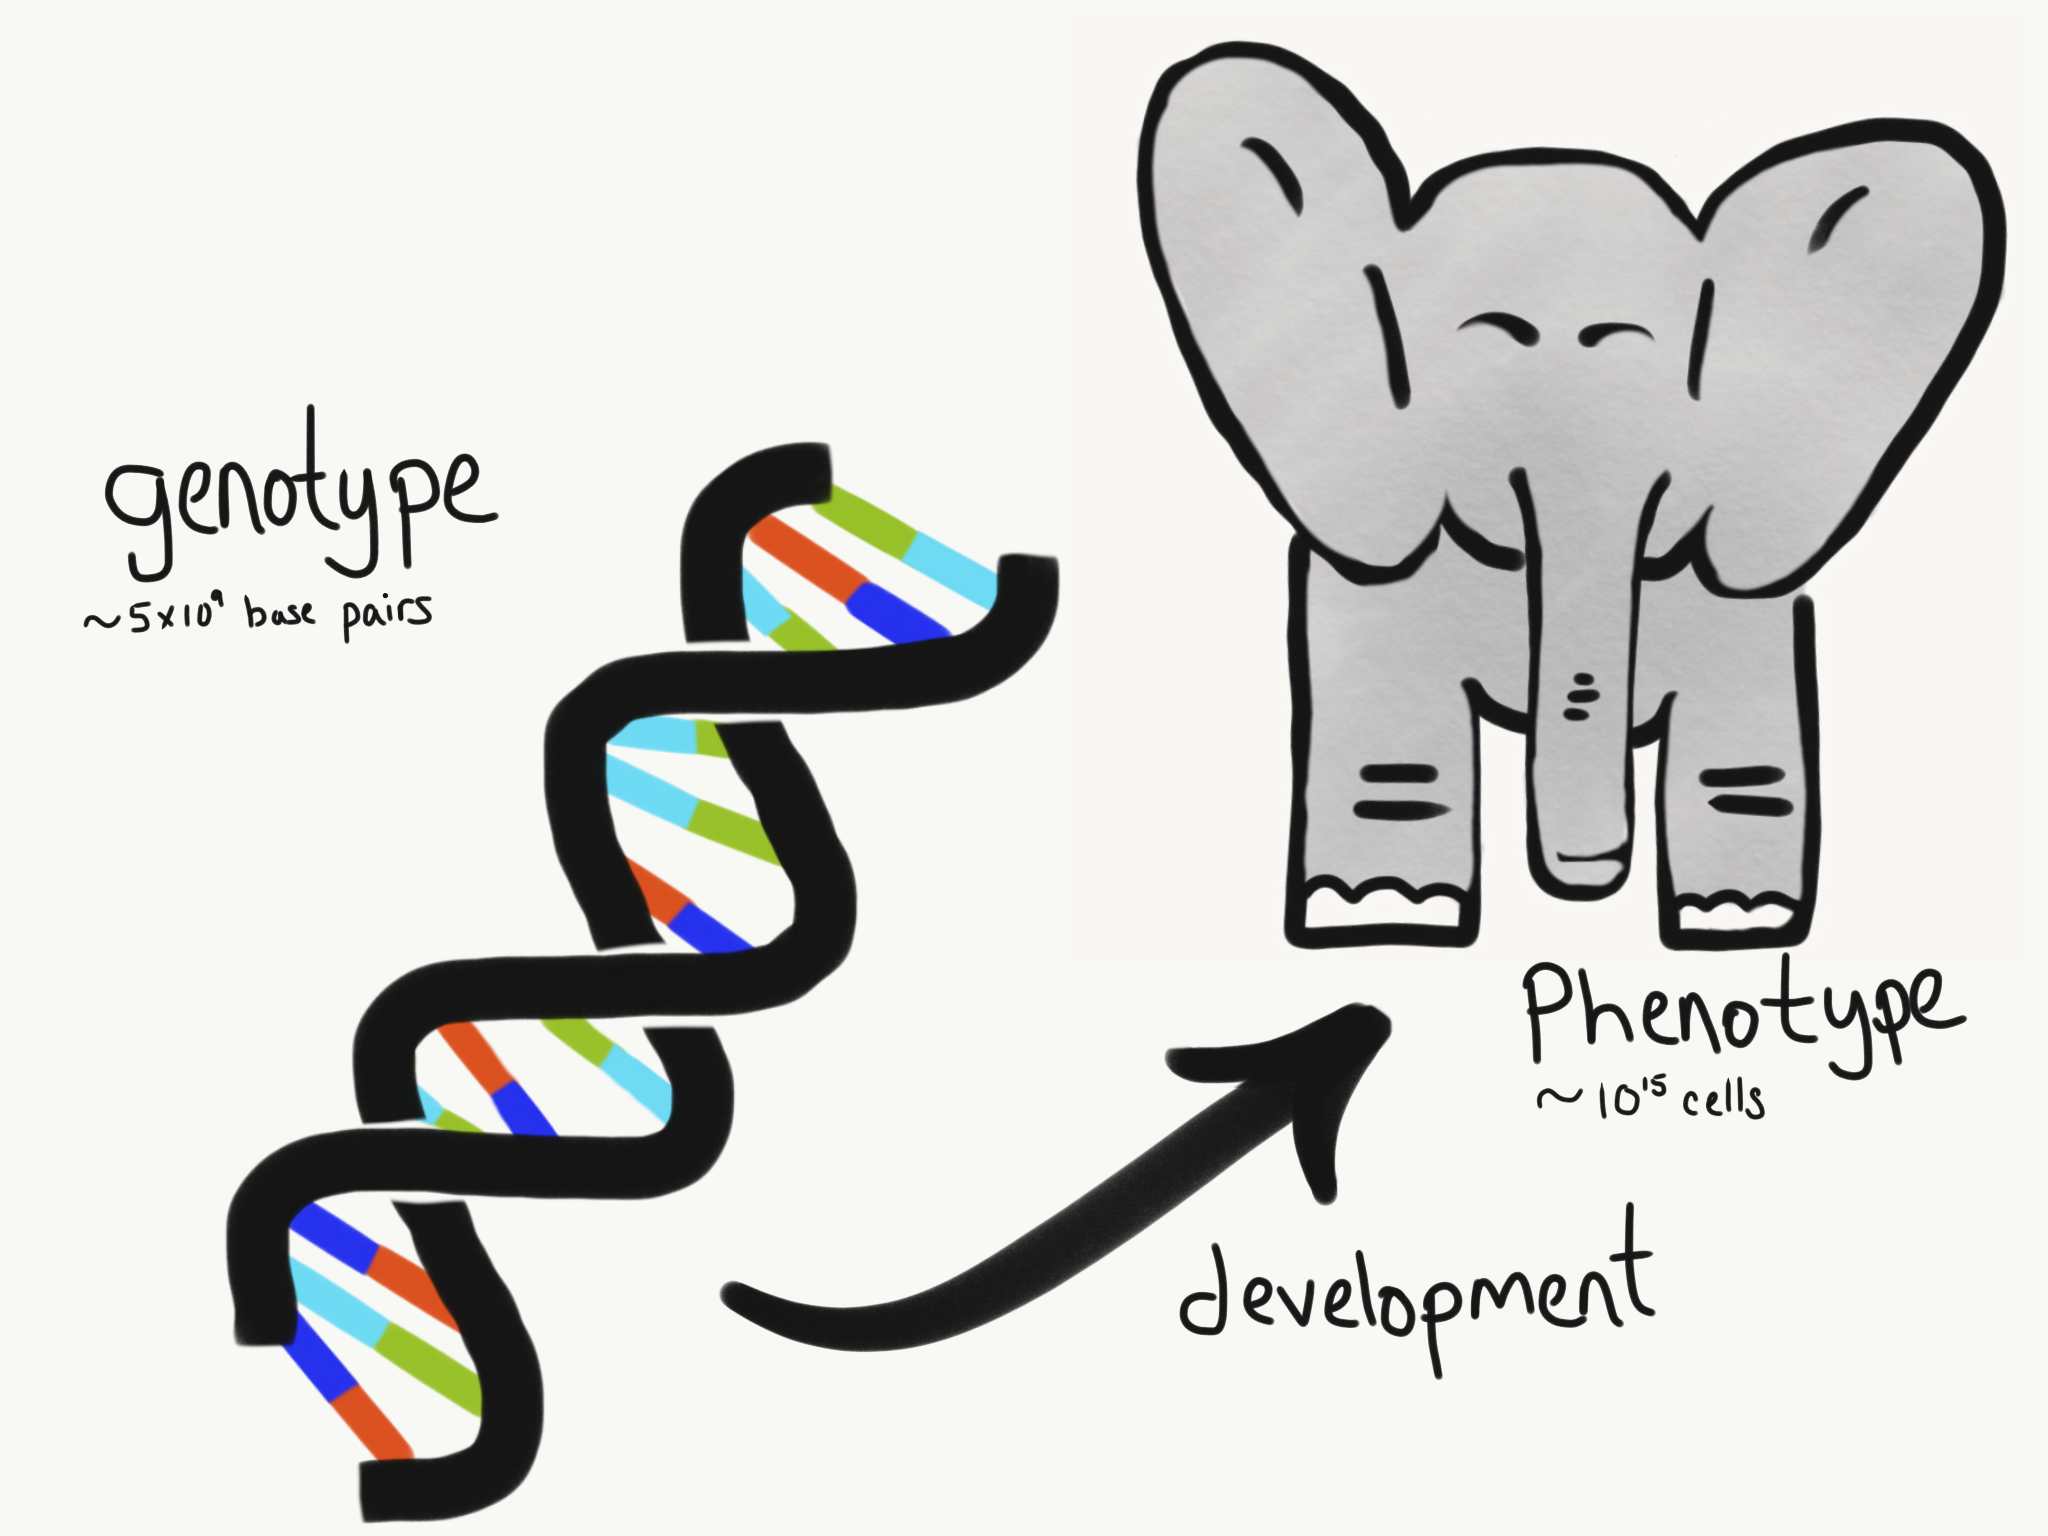 genotype
~5x10⁹ base pairs
Phenotype
~10¹⁵ cells
development